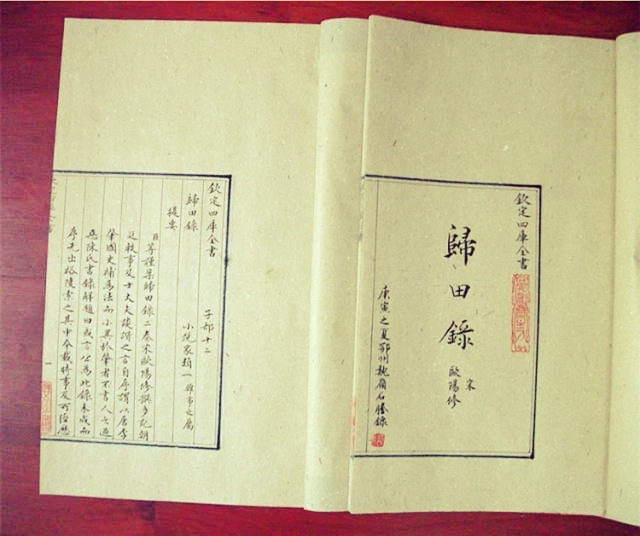 欽定四庫全書
歸田錄
宋
歐陽修
庚寅之夏鄂州魏嶺石謄錄
欽定四庫全書 子部十二
歸田錄 小說家類一雜事之屬
提要
臣等謹案歸田錄二卷宋歐陽修撰多記朝
廷軼事及士大夫談諧之言自序謂以唐李
肇國史補為法而小異於肇者不書人之過
惡陳氏書錄解題曰或言公為此錄未成而
序先出裕陵索之其中本載時事及所經歷